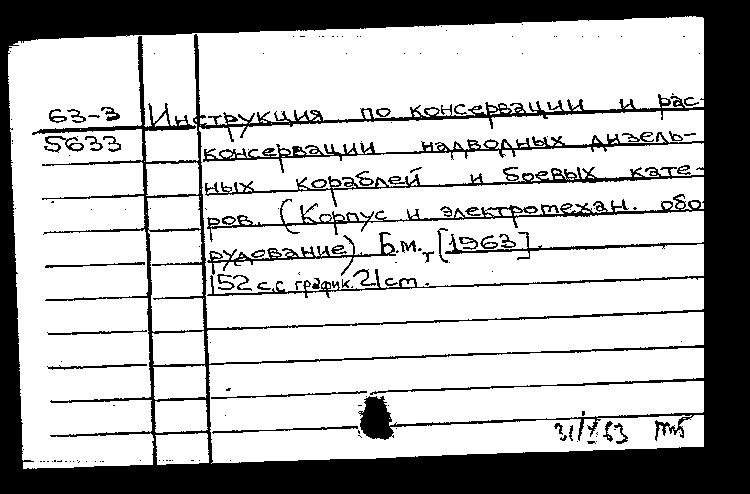 63-3 Инструкция по консервации и рас-
5633 консервации надводных дизель-
ных кораблей и боевых кате-
ров. (Корпус и электротехан. обо
рудевание) Б.м., [1963].
152 с.с график. 21 cm.
31/X 63